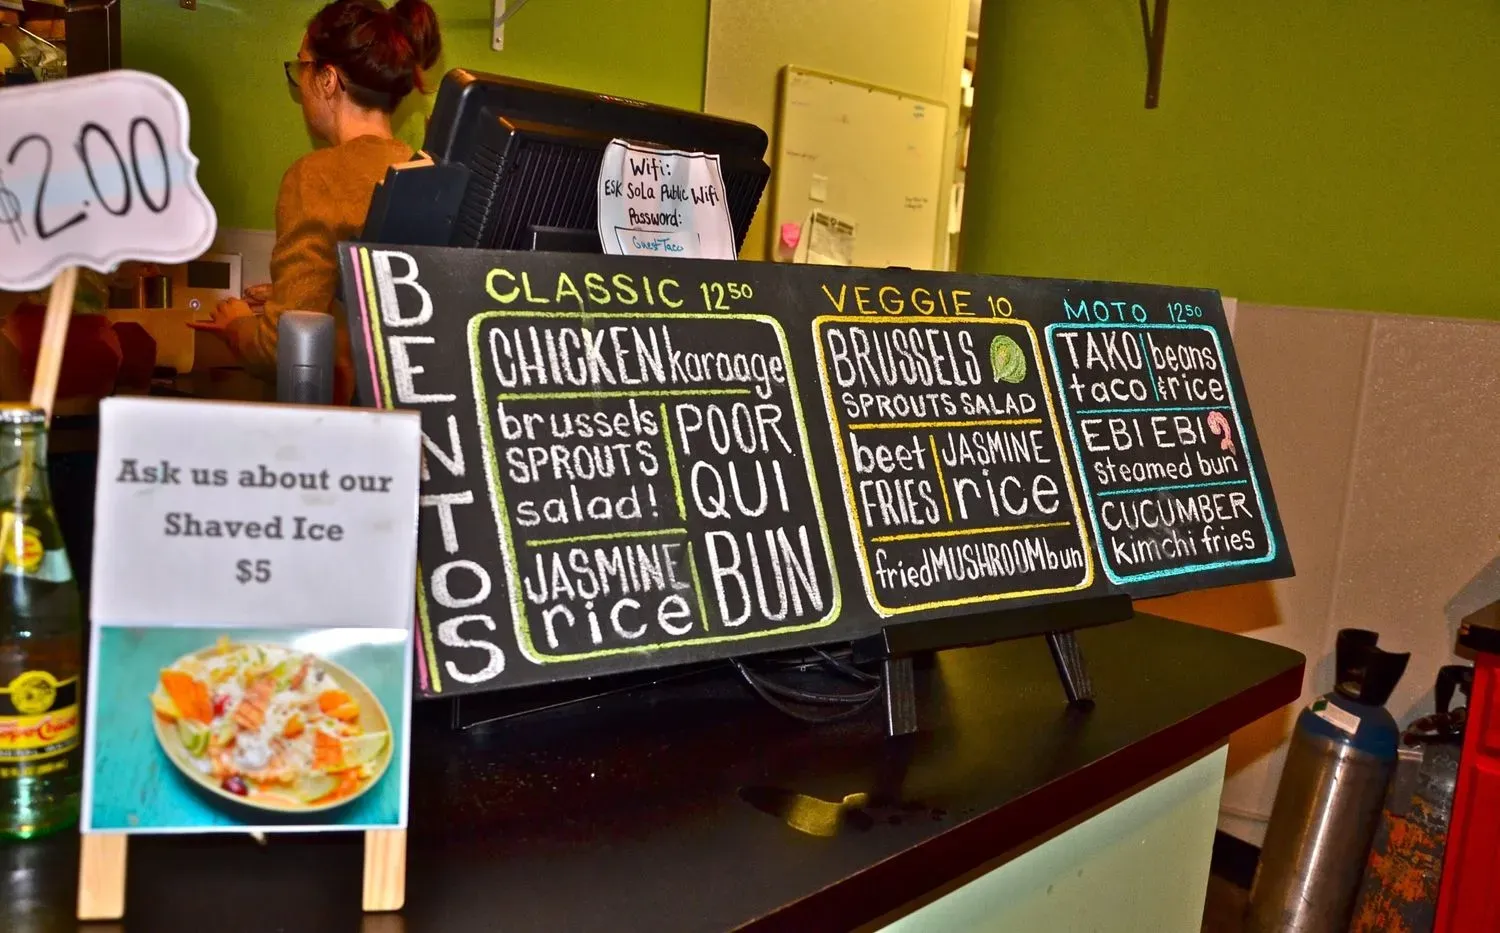 $2.00
Wifi:
ESK SoLa Public Wifi
Password:
Guest Taco
BENTOS
CLASSIC 12 50
CHICKEN karaage
brussels
SPROUTS
salad!
POOR
QUI
BUN
JASMINE
rice
VEGGIE 10
BRUSSELS
SPROUTS SALAD
beet
FRIES
JASMINE
rice
fried MUSHROOM bun
MOTO 12 50
TAKO
taco
beans
& rice
EBI EBI
steamed bun
CUCUMBER
kimchi fries
Ask us about our
Shaved Ice
$5
Topo Chico